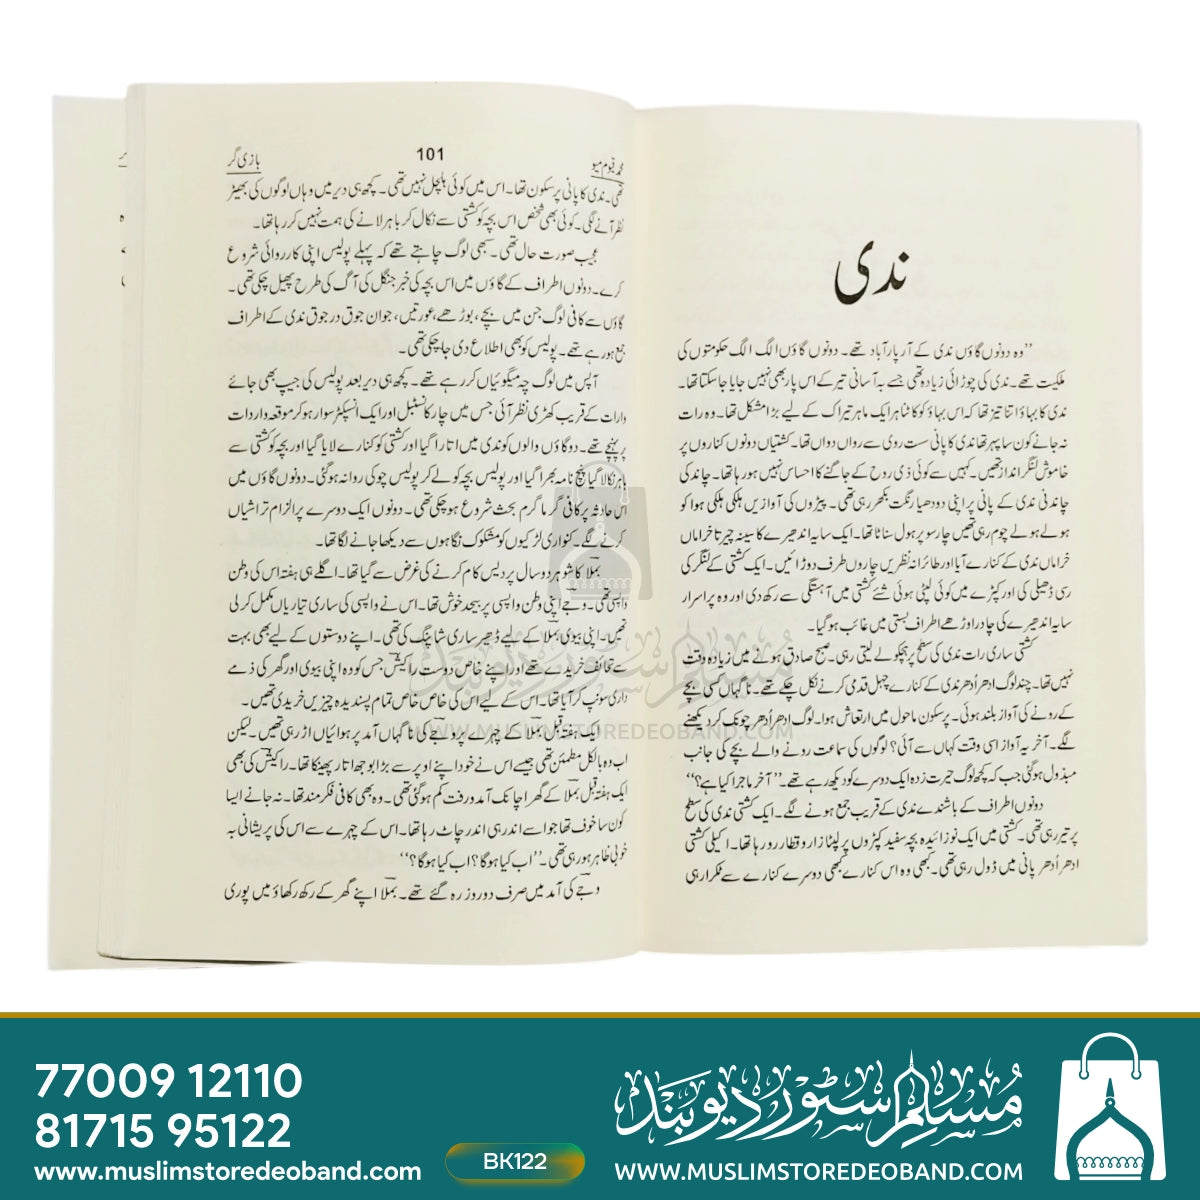 ندی
’’وہ دونوں گاؤں ندی کے آر پار آباد تھے۔ دونوں گاؤں الگ الگ حکومتوں کی
ملکیت تھے۔ ندی کی چوڑائی زیادہ تھی جسے بہ آسانی تیر کے اس پار بھی نہیں جایا جا سکتا تھا۔
ندی کا بہاؤ اتنا تیز تھا کہ اس بہاؤ کو کاٹنا ہر ایک ماہر تیراک کے لیے بڑا مشکل تھا۔ وہ رات
نہ جانے کون سا پہر تھا ندی کا پانی سست روی سے رواں دواں تھا۔ کشتیاں دونوں کناروں پر
خاموش لنگر انداز تھیں۔ کہیں سے کوئی ذی روح کے جاگنے کا احساس نہیں ہو رہا تھا۔ چاند کی
چاندنی ندی کے پانی پر اپنی دودھیا رنگت بکھر رہی تھی۔ پیڑوں کی آوازیں ہلکی ہلکی ہوا کو
ہولے ہولے چوم رہی تھیں چار سو پر ہول سناٹا تھا۔ ایک سایہ اندھیرے کا سینہ چیرتا خراماں
خراماں ندی کے کنارے آیا اور طائرانہ نظریں چاروں طرف دوڑائیں۔ ایک کشتی کے لنگر کی
رسی ڈھیلی کی اور کپڑے میں کوئی لپٹی ہوئی شئے کشتی میں آہستگی سے رکھ دی اور وہ پر اسرار
سایہ اندھیرے کی چادر اوڑھے اطراف بستی میں غائب ہو گیا۔
کشتی ساری رات ندی کی سطح پر ہچکولے لیتی رہی۔ صبح صادق ہونے میں زیادہ وقت
نہیں تھا۔ چند لوگ ادھر اُدھر ندی کے کنارے چہل قدمی کرنے نکل چکے تھے۔ ناگہاں کسی بچے
کے رونے کی آواز بلند ہوئی۔ پر سکون ماحول میں ارتعاش ہوا۔ لوگ ادھر اُدھر چونک کر دیکھنے
لگے۔ آخر یہ آواز اسی وقت کہاں سے آئی؟ لوگوں کی سماعت رونے والے بچے کی جانب
مبذول ہو گئی جب کہ کچھ لوگ حیرت زدہ ایک دوسرے کو دیکھ رہے تھے۔ ’’آخر ماجرا کیا ہے؟‘‘
دونوں اطراف کے باشندے ندی کے قریب جمع ہونے لگے۔ ایک کشتی ندی کی سطح
پر تیر رہی تھی۔ کشتی میں ایک نوزائیدہ بچہ سفید کپڑوں پر لپٹا زار و قطار رو رہا تھا۔ اکیلی کشتی
ادھر اُدھر پانی میں ڈول رہی تھی۔ کبھی وہ اس کنارے کبھی دوسرے کنارے سے ٹکرا رہی
محمد قیوم میو 101 بازی گر
تھی۔ ندی کا پانی پر سکون تھا۔ اس میں کوئی ہلچل نہیں تھی۔ کچھ ہی دیر میں وہاں لوگوں کی بھیڑ
نظر آنے لگی۔ کوئی بھی شخص اس بچہ کو کشتی سے نکال کر باہر لانے کی ہمت نہیں کر رہا تھا۔
عجیب صورت حال تھی۔ سبھی لوگ چاہتے تھے کہ پہلے پولیس اپنی کارروائی شروع
کرے۔ دونوں اطراف کے گاؤں میں اس بچہ کی خبر جنگل کی آگ کی طرح پھیل چکی تھی۔
گاؤں سے کافی لوگ جن میں بچے، بوڑھے، عورتیں، جوان جوق در جوق ندی کے اطراف
جمع ہو رہے تھے۔ پولیس کو بھی اطلاع دی جا چکی تھی۔
آپس میں لوگ چہ میگوئیاں کر رہے تھے۔ کچھ ہی دیر بعد پولیس کی جیپ بھی جائے
واردات کے قریب کھڑی نظر آئی جس میں چار کانسٹبل اور ایک انسپکٹر سوار ہو کر موقعہ واردات
پر پہنچے تھے۔ دو گاؤں والوں کو ندی میں اتارا گیا اور کشتی کو کنارے لایا گیا اور بچہ کو کشتی سے
باہر نکالا گیا پنچ نامہ بھرا گیا اور پولیس بچہ کو لے کر پولیس چوکی روانہ ہو گئی۔ دونوں گاؤں میں
اس حادثہ پر کافی گرما گرم بحث شروع ہو چکی تھی۔ دونوں ایک دوسرے پر الزام تراشیاں
کرنے لگے۔ کنواری لڑکیوں کو مشکوک نگاہوں سے دیکھا جانے لگا تھا۔
بملا کا شوہر دو سال پردیس کام کرنے کی غرض سے گیا تھا۔ اگلے ہی ہفتہ اس کی وطن
واپسی تھی۔ وجے اپنی وطن واپسی پر بیحد خوش تھا۔ اس نے واپسی کی ساری تیاریاں مکمل کر لی
تھیں۔ اپنی بیوی بملا کے لیے ڈھیر ساری شاپنگ کی تھی۔ اپنے دوستوں کے لیے بھی بہت
سے تحائف خریدے تھے اور اپنے خاص دوست راکیش جس کو وہ اپنی بیوی اور گھر کی ذمے
داری سونپ کر آیا تھا۔ اس کے لیے اس کی خاص خاص تمام پسندیدہ چیزیں خریدی تھیں۔
ایک ہفتہ قبل بملا کے چہرے پر وجے کی ناگہاں آمد پر ہوائیاں اڑ رہی تھیں۔ لیکن
اب وہ بالکل مطمئن تھی جیسے اس نے خود اپنے اوپر سے بڑا بوجھ اتار پھینکا تھا۔ راکیش کی بھی
ایک ہفتہ قبل بملا کے گھر اچانک آمد و رفت کم ہو گئی تھی۔ وہ بھی کافی فکر مند تھا۔ نہ جانے ایسا
کون سا خوف تھا جو اسے اندر ہی اندر چاٹ رہا تھا۔ اس کے چہرے سے اس کی پریشانی بہ
خوبی ظاہر ہو رہی تھی۔ ’’اب کیا ہوگا؟ اب کیا ہوگا؟‘‘
وجے کی آمد میں صرف دو روز رہ گئے تھے۔ بملا اپنے گھر کے رکھ رکھاؤ میں پوری
مسلم سٹور دیوبند
WWW.MUSLIMSTOREDEOBAND.COM
77009 12110
81715 95122
www.muslimstoredeoband.com
BK122
مسلم سٹور دیوبند
WWW.MUSLIMSTOREDEOBAND.COM